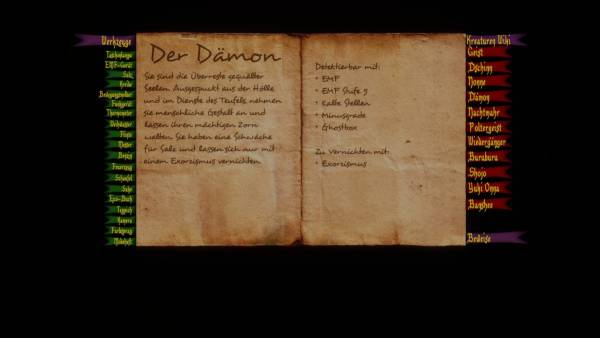 Werkzeuge
Taschenlampe
EMF-Gerät
Salz
Kerze
Bewegungsmelder
Funkgerät
Thermometer
Flinte
Messer
Benzin
Feuerzeug
Schaufel
Säge
Teppich
Kamera
Farbspray
Der Dämon
Sie sind die Überreste gequälter
Seelen. Ausgespuckt aus der Hölle
und im Dienste des Teufels nehmen
sie menschliche Gestalt an und
lassen ihren mächtigen Zorn
walten. Sie haben eine Schwäche
für Salz und lassen sich nur mit
einem Exorzismus vernichten.
Detektierbar mit:
• EMF
• EMF Stufe 5
• Kalte Stellen
• Minusgrade
• Ghostbox
Zu Vernichten mit:
• Exorzismus
Kreaturen Wiki
Geist
Dschinn
Nonne
Dämon
Nachtmahr
Poltergeist
Wiedergänger
Buruburu
Shojo
Yuki Onna
Banshee
Beweise